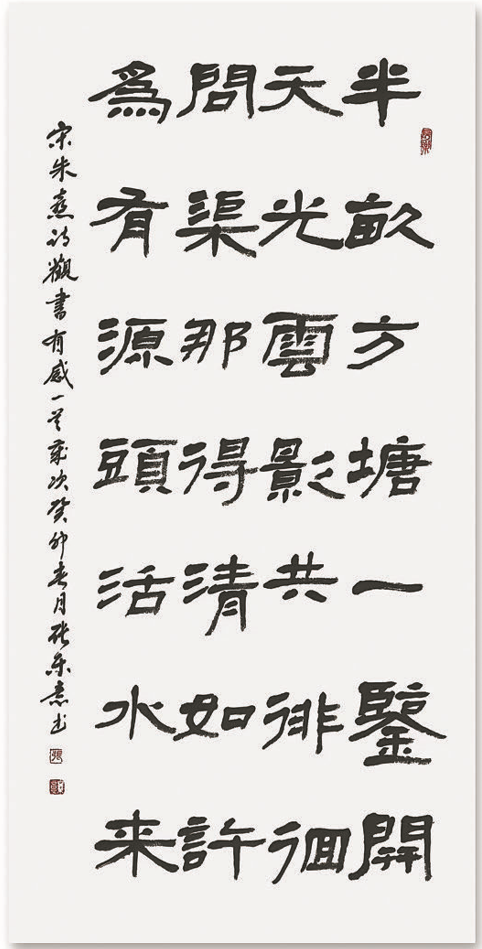 半畝方塘一鑒開
天光雲影共徘徊
問渠那得清如許
為有源頭活水来
宋朱熹詩觀書有感一首歲次癸卯春月張樂熹書